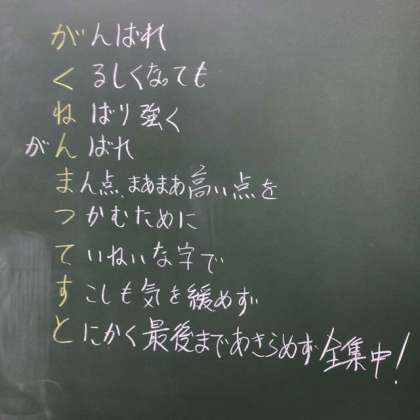 がんばれ
くるしくなっても
ねばり強く
がんばれ
まん点、まあまあ高い点を
つかむために
ていねいな字で
すこしも気を緩めず
とにかく最後まであきらめず全集中!